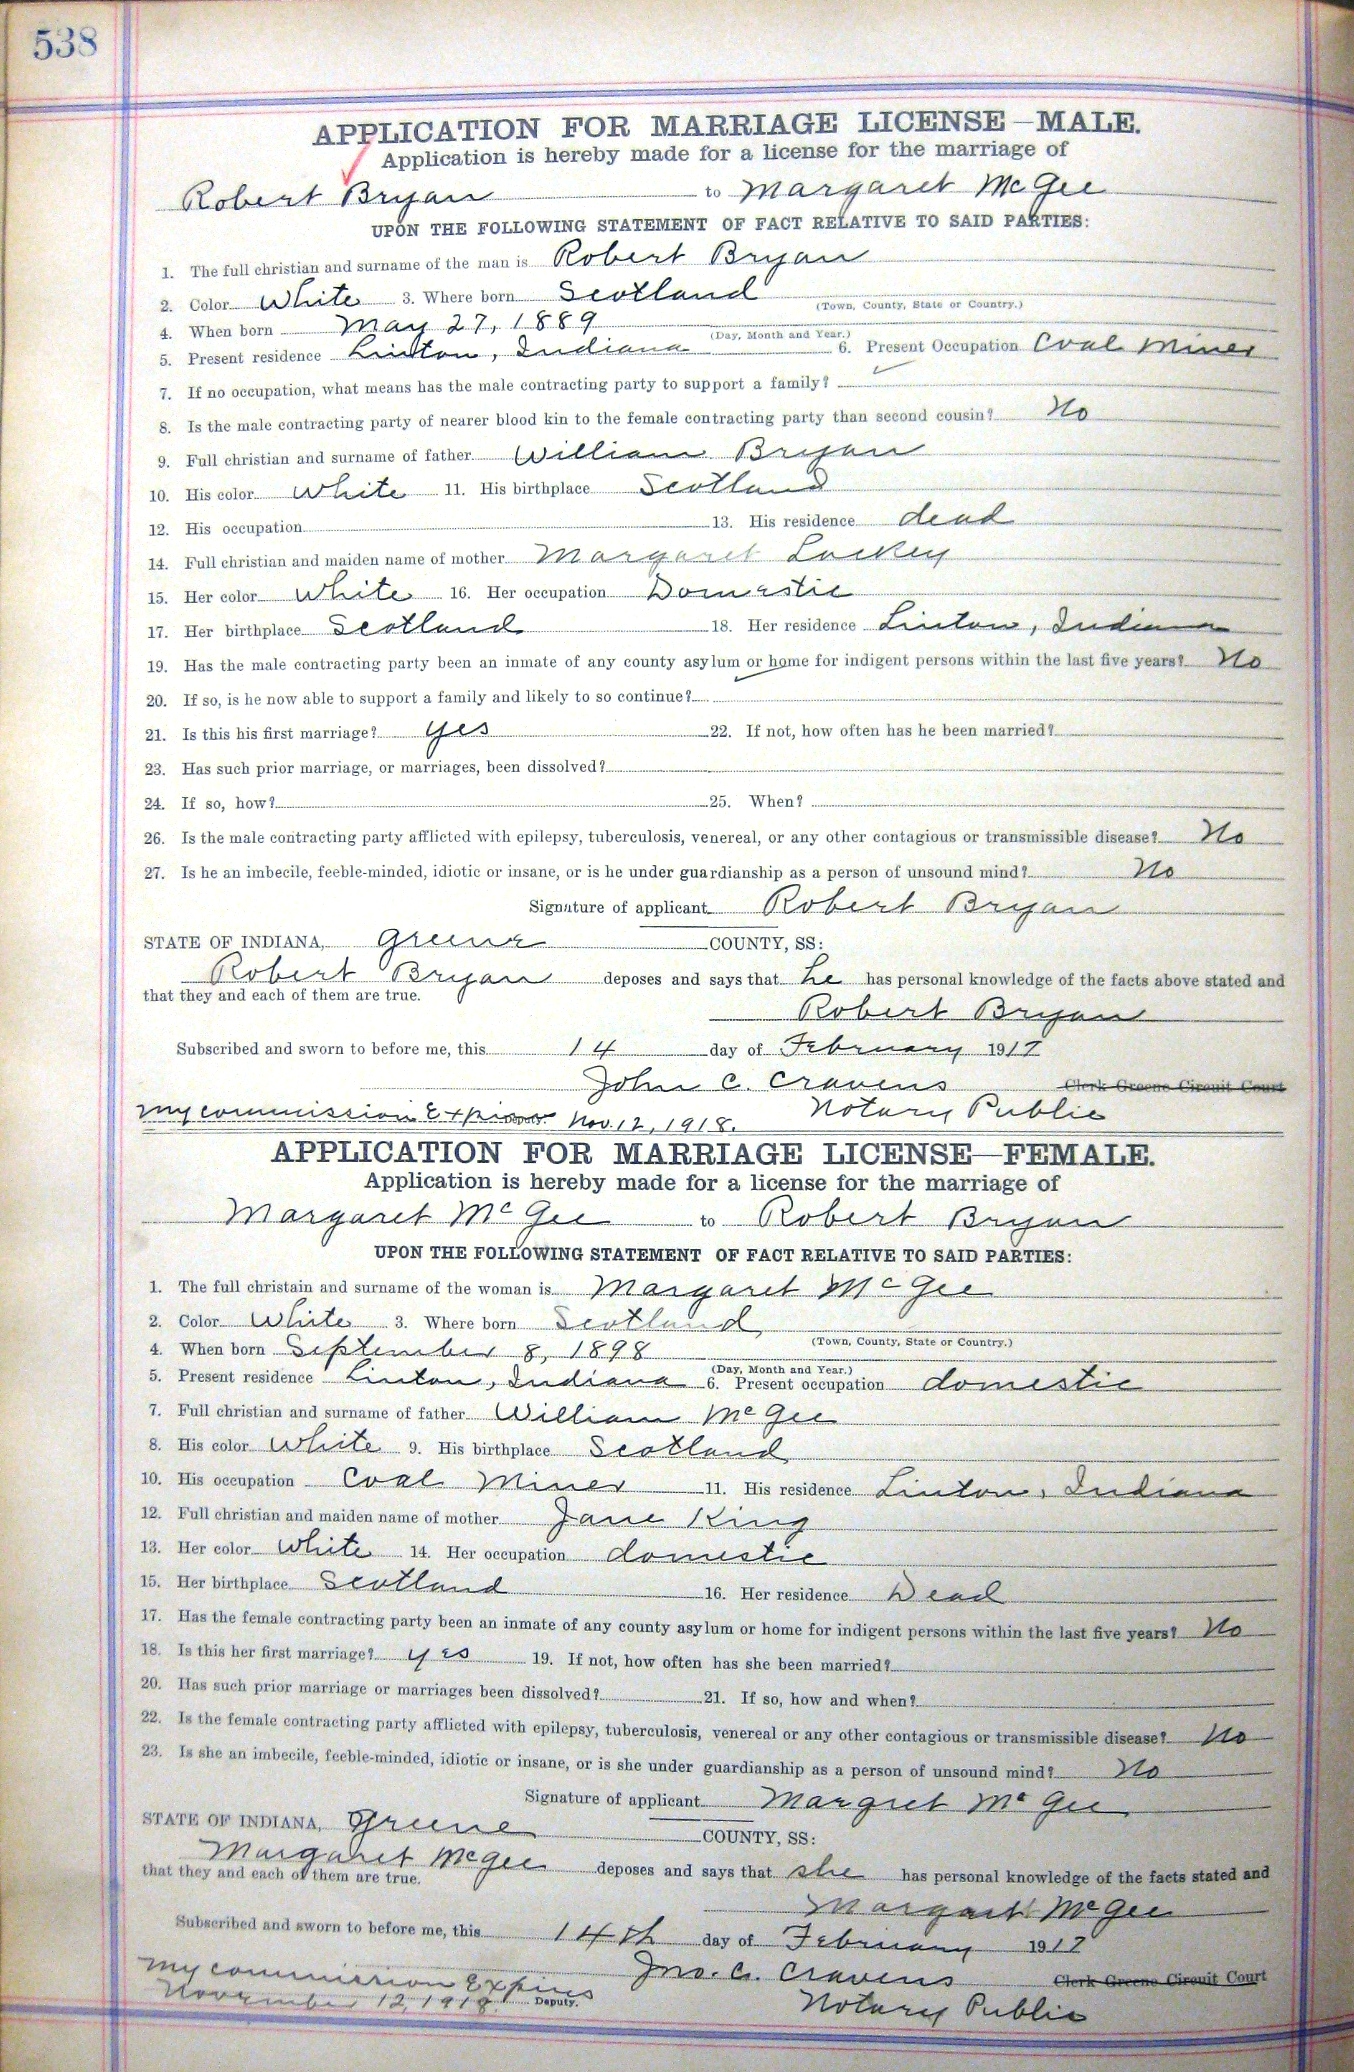 538
APPLICATION FOR MARRIAGE LICENSE—MALE.
Application is hereby made for a license for the marriage of
Robert Bryan to Margaret McGee
UPON THE FOLLOWING STATEMENT OF FACT RELATIVE TO SAID PARTIES:
1. The full christian and surname of the man is Robert Bryan
2. Color White 3. Where born Scotland
(Town, County, State or Country.)
4. When born May 27, 1889
(Day, Month and Year.)
5. Present residence Linton, Indiana 6. Present Occupation Coal Miner
7. If no occupation, what means has the male contracting party to support a family?
8. Is the male contracting party of nearer blood kin to the female contracting party than second cousin? No
9. Full christian and surname of father William Bryan
10. His color White 11. His birthplace Scotland
12. His occupation 13. His residence dead
14. Full christian and maiden name of mother Margaret Lackey
15. Her color White 16. Her occupation Domestic
17. Her birthplace Scotland 18. Her residence Linton, Indiana
19. Has the male contracting party been an inmate of any county asylum or home for indigent persons within the last five years? No
20. If so, is he now able to support a family and likely to so continue?
21. Is this his first marriage? yes 22. If not, how often has he been married?
23. Has such prior marriage, or marriages, been dissolved?
24. If so, how? 25. When?
26. Is the male contracting party afflicted with epilepsy, tuberculosis, venereal, or any other contagious or transmissible disease? No
27. Is he an imbecile, feeble-minded, idiotic or insane, or is he under guardianship as a person of unsound mind? No
Signature of applicant Robert Bryan
STATE OF INDIANA, Greene COUNTY, SS:
Robert Bryan deposes and says that he has personal knowledge of the facts above stated and
that they and each of them are true.
Robert Bryan
Subscribed and sworn to before me, this 14 day of February 1917
John C. Cravens Clerk Greene Circuit Court
My commission Expires Nov. 12, 1918. Notary Public
APPLICATION FOR MARRIAGE LICENSE—FEMALE.
Application is hereby made for a license for the marriage of
Margaret McGee to Robert Bryan
UPON THE FOLLOWING STATEMENT OF FACT RELATIVE TO SAID PARTIES:
1. The full christain and surname of the woman is Margaret McGee
2. Color White 3. Where born Scotland
(Town, County, State or Country.)
4. When born September 8, 1898
(Day, Month and Year.)
5. Present residence Linton, Indiana 6. Present occupation domestic
7. Full christian and surname of father William McGee
8. His color White 9. His birthplace Scotland
10. His occupation Coal Miner 11. His residence Linton, Indiana
12. Full christian and maiden name of mother Jane King
13. Her color White 14. Her occupation domestic
15. Her birthplace Scotland 16. Her residence Dead
17. Has the female contracting party been an inmate of any county asylum or home for indigent persons within the last five years? No
18. Is this her first marriage? yes 19. If not, how often has she been married?
20. Has such prior marriage or marriages been dissolved? 21. If so, how and when?
22. Is the female contracting party afflicted with epilepsy, tuberculosis, venereal or any other contagious or transmissible disease? No
23. Is she an imbecile, feeble-minded, idiotic or insane, or is she under guardianship as a person of unsound mind? No
Signature of applicant Margret McGee
STATE OF INDIANA, Greene COUNTY, SS:
Margaret McGee deposes and says that she has personal knowledge of the facts stated and
that they and each of them are true.
Margaret McGee
Subscribed and sworn to before me, this 14th day of February 1917
Jno. C. Cravens Clerk Greene Circuit Court
My commission Expires
November 12, 1918 Deputy. Notary Public